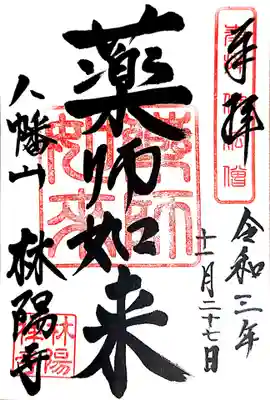 奉拝
令和三年
十一月二十七日
薬師如来
八幡山 林陽寺